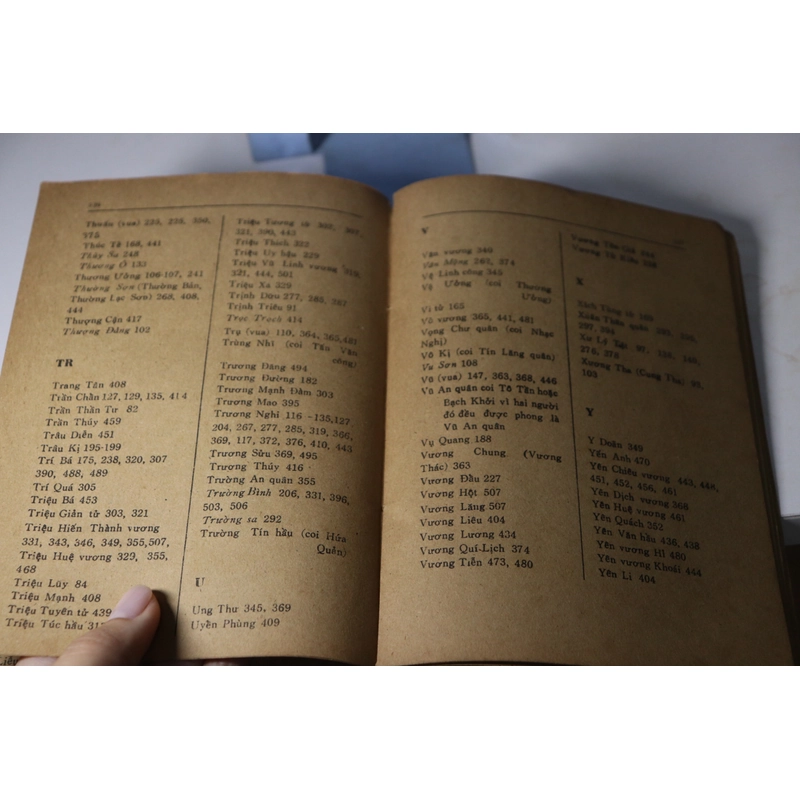 Thuốc (vua) 225, 235, 350,
Thúc Tử 168, 441
Thúy Sa 248
Thương Ô 133
Thương Ưởng 106-197, 241
Thường Sơn (Thường Bản,
Thường Lạc Sơn) 268, 408,
444
Thượng Cận 417
Thượng Đảng 102
TR
Trang Tân 408
Trần Chẩn 127, 129, 135, 414
Trần Thần Tư 82
Trần Thúy 459
Trâu Diễn 451
Trâu Kị 195-199
Trí Bá 175, 238, 320, 307
390, 488, 489
Trí Quá 305
Triệu Bá 453
Triệu Giản tử 303, 321
Triệu Hiến Thành vương
331, 343, 346, 349, 355,507,
Triệu Huệ vương 329, 355,
468
Triệu Lũy 84
Triệu Mạnh 408
Triệu Tuyên tử 439
Triệu Túc hầu
Triệu Tương tử 302, 307,
321, 390, 443
Triệu Thích 332
Triệu Uy hậu 229
Triệu Vũ Linh vương 319,
321, 444, 501
Triệu Xa 329
Trịnh Dựu 277, 285, 287
Trịnh Triều 91
Trọc Trạch 414
Trụ (vua) 110, 364, 365,481
Trùng Nhĩ (coi Tấn Văn
công)
Trương Đăng 494
Trương Đường 182
Trương Mạnh Đàm 303
Trương Mao 395
Trương Nghi 116 -135,127,
204, 267, 277, 285, 319, 366,
369, 117, 372, 376, 410, 443
Trương Sửu 369, 495
Trương Thúy 416
Trường An quân 355
Trường Bình 206, 331, 396,
503, 506
Trường sa 292
Trường Tín hầu (coi Hứa
Quán)
U
Ung Thư 345, 369
Uyển Phùng 409
V
Văn vương 340
Vân Mộng 262, 374
Vệ Linh công 345
Vệ Ưởng (coi Thương
Ưởng)
Vi tử 165
Võ vương 365, 441, 481
Vọng Chư quân (coi Nhạc
Nghị)
Vô Kị (coi Tín Lăng quân)
Vu Sơn 108
Vũ (vua) 147, 363, 368, 446
Vũ An quân coi Tô Tần hoặc
Bạch Khởi vì hai người
đó đều được phong là
Vũ An quân
Vụ Quang 188
Vương Chung (Vương
Thác) 363
Vương Đẩu 227
Vương Hột 507
Vương Lăng 507
Vương Liêu 404
Vương Lương 434
Vương Quí-Lịch 374
Vương Tiễn 473, 480
X
Y
Y Doãn 349
Yến Anh 470
Yên Chiêu vương 443, 448,
451, 452, 456, 461
Yên Dịch vương 368
Yên Huệ vương 461
Yên Quách 352
Yên Văn hầu 436, 438
Yên vương Hỉ 480
Yên vương Khoái 444
Yên Li 404